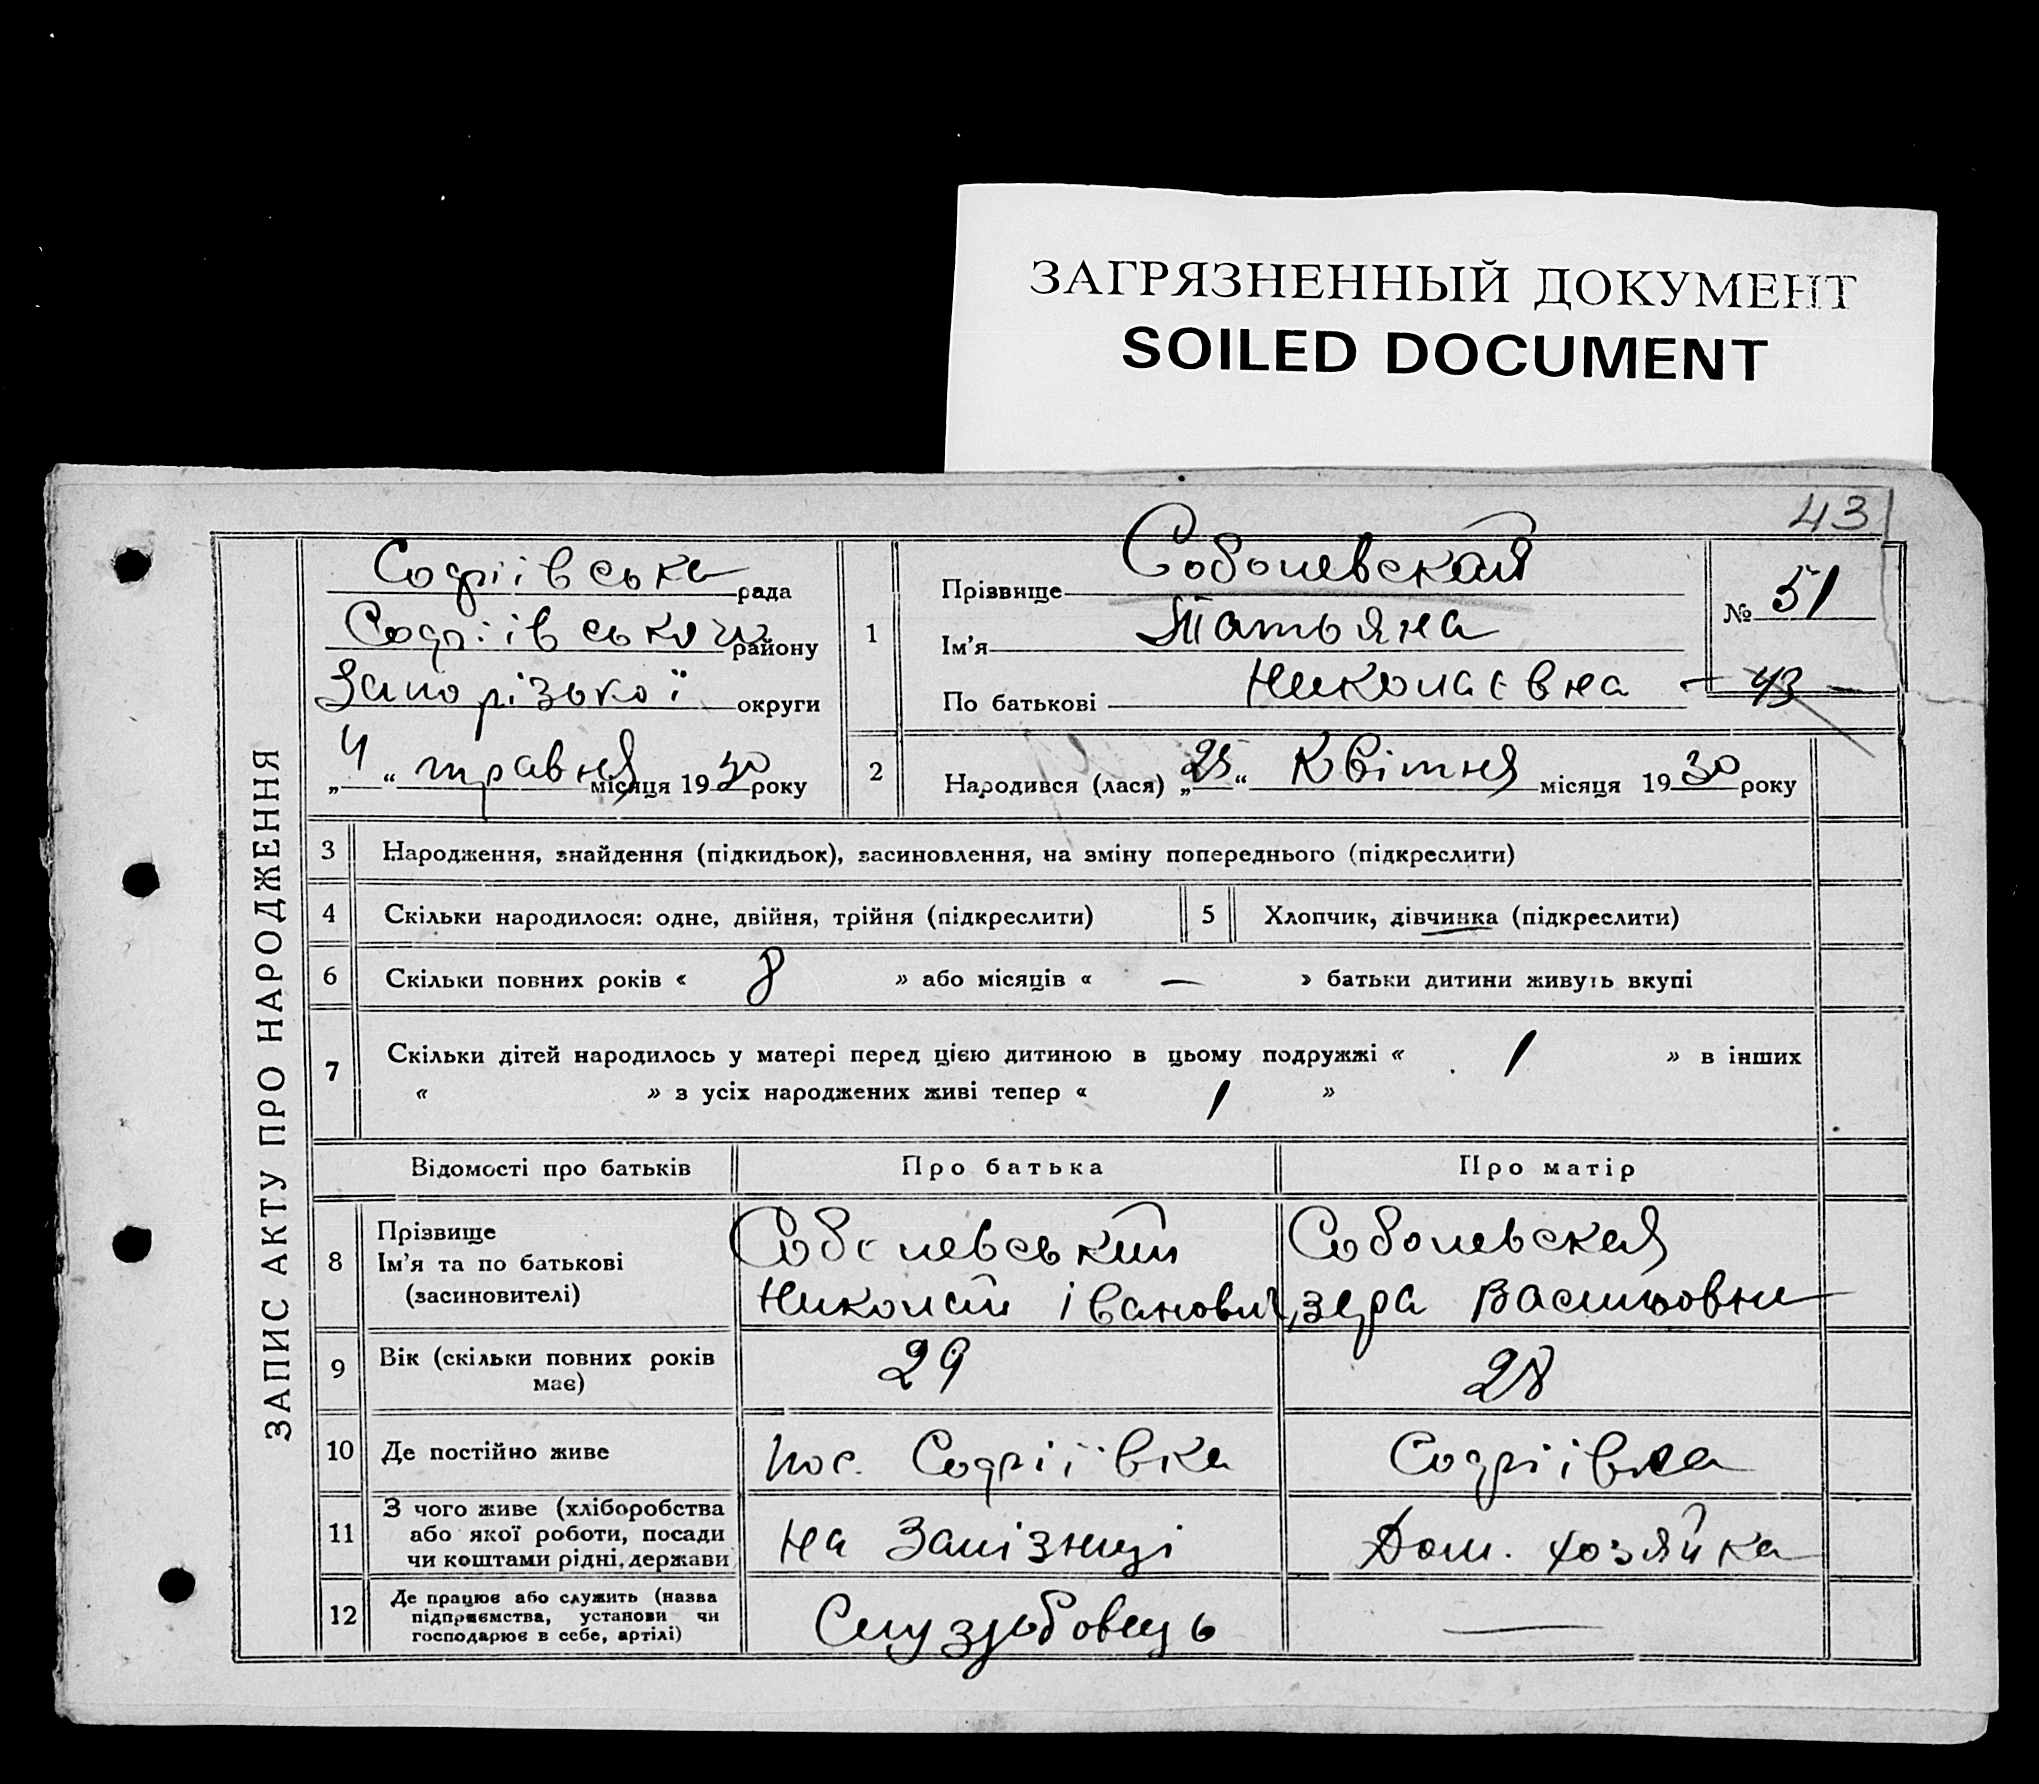 ЗАГРЯЗНЕННЫЙ ДОКУМЕНТ
SOILED DOCUMENT
43
ЗАПИС АКТУ ПРО НАРОДЖЕННЯ
Софіївська рада
Софіївськ району
Запорізької округи
„4“ травня місяця 1930 року
1
Прізвище Соболевская
Ім'я Татьяна
По батькові Николаєвна
№ 51
— 43 —
2 Народився (лася) „25“ Квітня місяця 1930 року
3 Народження, знайдення (підкидьок), засиновлення, на зміну попереднього (підкреслити)
4 Скільки народилося: одне, двійня, трійня (підкреслити) 5 Хлопчик, дівчинка (підкреслити)
6 Скільки повних років « 8 » або місяців « — » батьки дитини живуть вкупі
7 Скільки дітей народилось у матері перед цією дитиною в цьому подружжі « 1 » в інших
« » з усіх народжених живі тепер « 1 »
Відомості про батьків Про батька Про матір
8 Прізвище
Ім'я та по батькові
(засиновителі)
Соболевський
Николай Іванович
Соболевская
Васильовна
9 Вік (скільки повних років
має)
29
28
10 Де постійно живе пос. Софіївка Софіївка
11 З чого живе (хліборобства
або якої роботи, посади
чи коштами рідні, держави
на Залізниці
Дом. хозяйка
12 Де працює або служить (назва
підприємства, установи чи
господарює в себе, артілі)
Службовець
—